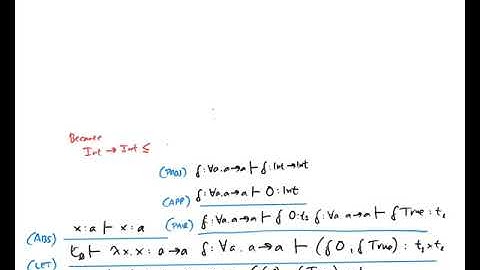 Because
Int → Int ≤
(TAUT) f:∀a.a→a ⊢ f:Int→Int
(APP) f:∀a.a→a ⊢ 0:Int
x:a ⊢ x:a (PAIR) f:∀a.a→a ⊢ f 0:t₁ f:∀a.a→a ⊢ f True:t₂
(ABS) ⊢ λx.x:a→a f:∀a.a→a ⊢ (f 0, f True):t₁×t₂
(LET)